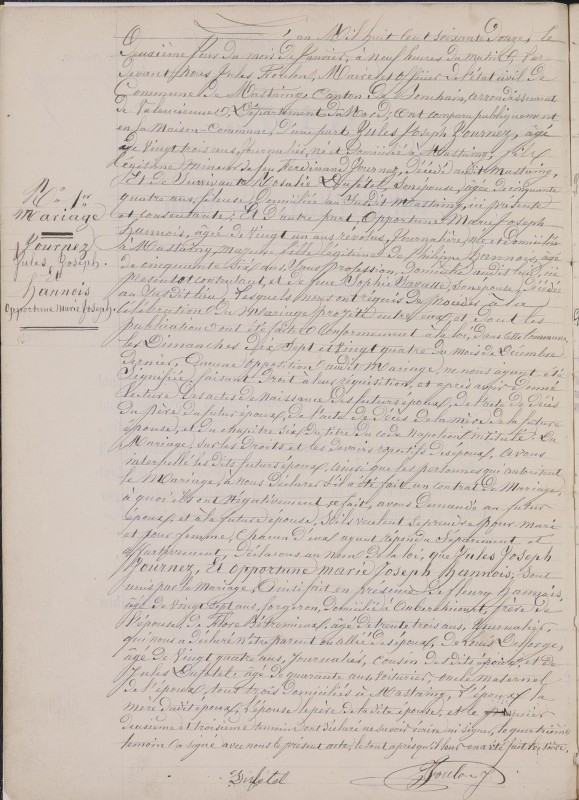 L'an Mil huit cent soixante douze, le
deuxième jour du mois de Janvier, à neuf heures du matin, Par
devant Nous Jules Maire et officier de l'état civil de
Commune de Mastaing Canton de Bouchain, arrondissement
de Valenciennes, Département du Nord; Ont comparu publiquement
en la Maison-Commune, d'une part Jules Joseph Pournez, âgé
de vingt trois ans, journalier, né et domicilié à Mastaing, fils
légitime mineur de feu Ferdinand Pournez, décédé audit Mastaing,
Et de Survivante Rosalie Dufétel, son épouse, âgée de cinquante
quatre ans, fileuse, domiciliée au susdit Mastaing, ici présente
et consentante; Et d'autre part Opportune Marie Joseph
Hannois, âgée de vingt un ans révolus, Journalière, née et domiciliée
à Mastaing, majeure fille légitime de Philippe Hannois, âgé
de cinquante six ans, sans profession, domicilié audit lieu, ici
présent et consentant, et de feue Sophie Lavalle, son épouse, décédée
au susdit lieu, lesquels nous ont requis de procéder à la
célébration du Mariage projeté entre eux, et dont les
publications ont été faites Conformément à la loi, dans cette commune
les Dimanches dix sept et vingt quatre du mois de Décembre
dernier. Aucune opposition audit Mariage, ne nous ayant été
signifiée, faisant droit à leur réquisition, et après avoir donné
lecture des actes de Naissance des futurs époux, de l'acte de décès
du père du futur époux, de l'acte de décès de la mère de la future
épouse, et du chapitre six du titre du code Napoléon intitulé: Du
Mariage, sur les Droits et les Devoirs respectifs des époux, avons
interpellé les dits futurs époux, ainsi que les personnes qui autorisent
le Mariage, à nous déclarer s'il a été fait un contrat de Mariage,
à quoi ils ont négativement fait, avons demandé au futur
époux, et à la future épouse, s'ils veulent se prendre pour mari
et pour femme, Chacun d'eux ayant répondu séparément et
affirmativement, déclarons au nom de la loi, que Jules Joseph
Pournez, Et Opportune Marie Joseph Hannois, sont
unis par le Mariage, Ainsi fait en présence de fleury Hannois,
âgé de vingt sept ans, forgeron, domicilié à Auberchicourt, frère de
l'épouse, de Flore âgé de trente trois ans, Journalier,
qui nous a déclaré n'être parent ou allié des époux, de Louis Desforges,
âgé de vingt quatre ans, Journalier, cousin de la dite épouse, et de
Jules Dufétel âgé de quarante ans, voiturier, oncle maternel
de l'époux, tous trois domiciliés à Mastaing, l'époux, la
mère dudit époux, l'épouse, le père de la dite épouse, et le premier
deuxième et troisième témoins ont déclaré ne savoir écrire ni signer, le quatrième
témoin a signé avec nous le présent acte, le tout après qu'il leur en a été fait lecture.
Dufétel
N.° 1.er
Mariage
Pournez
Jules Joseph.
Et
Hannois
Opportune Marie Joseph.